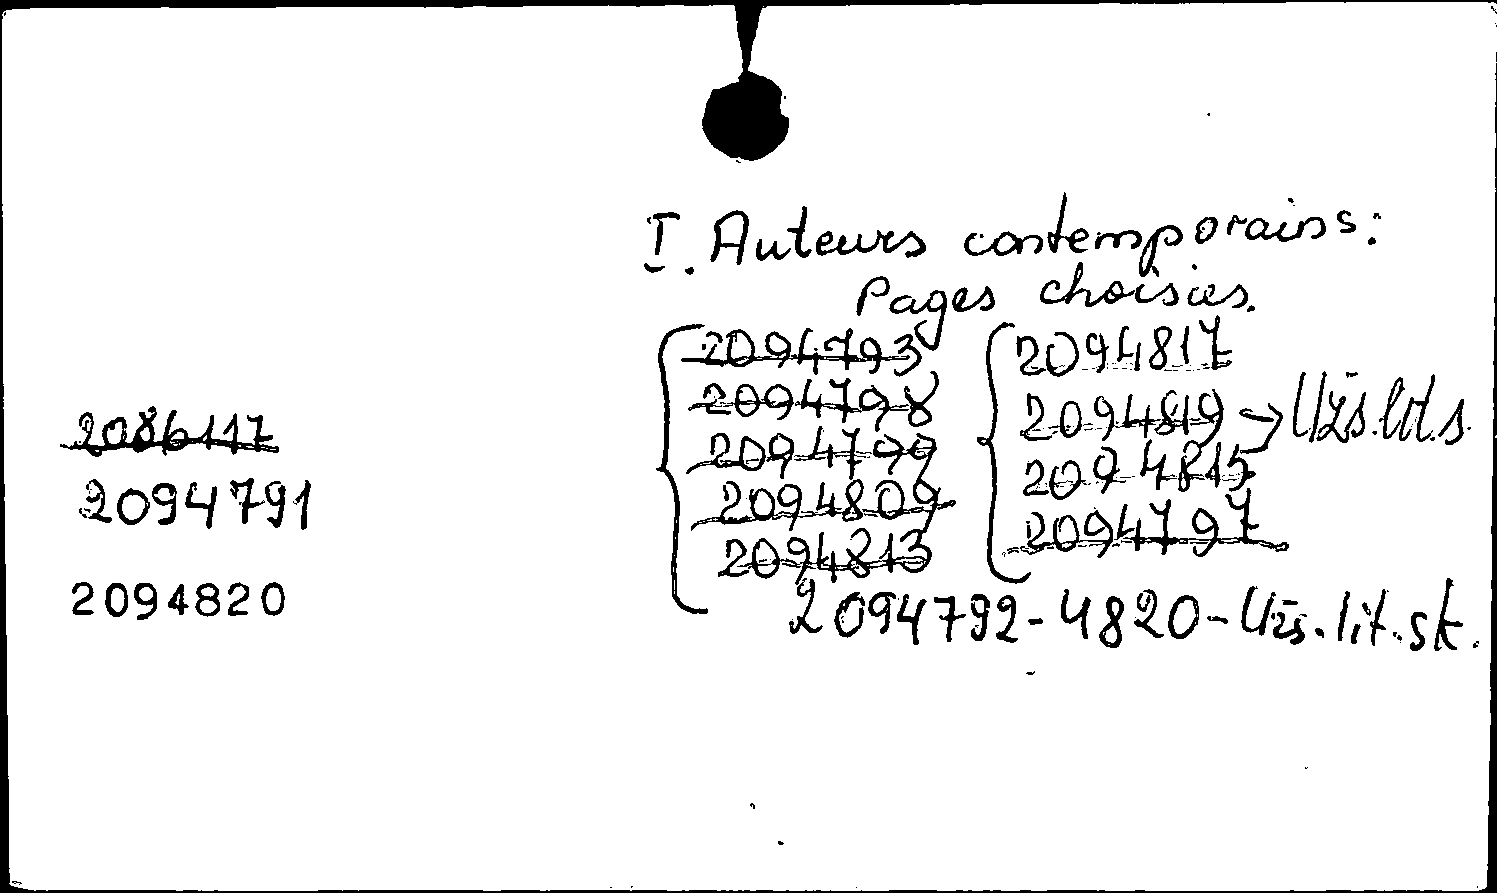 I. Auteurs contemporains:
Pages choisies.
2094793 2094817
2094798 2094819 → Užs. lit. s.
2086117
2094799 2094815
2094791
2094809 2094797
2094813
2094820
2094792-4820-Užs. lit. sk.